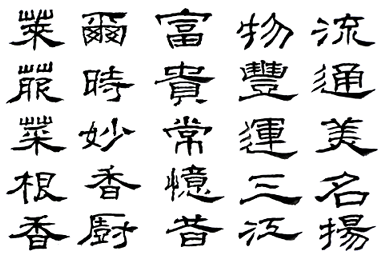 萊菔菜根香
爾時妙香廚
富貴常憶昔
物豐運三江
流通美名揚